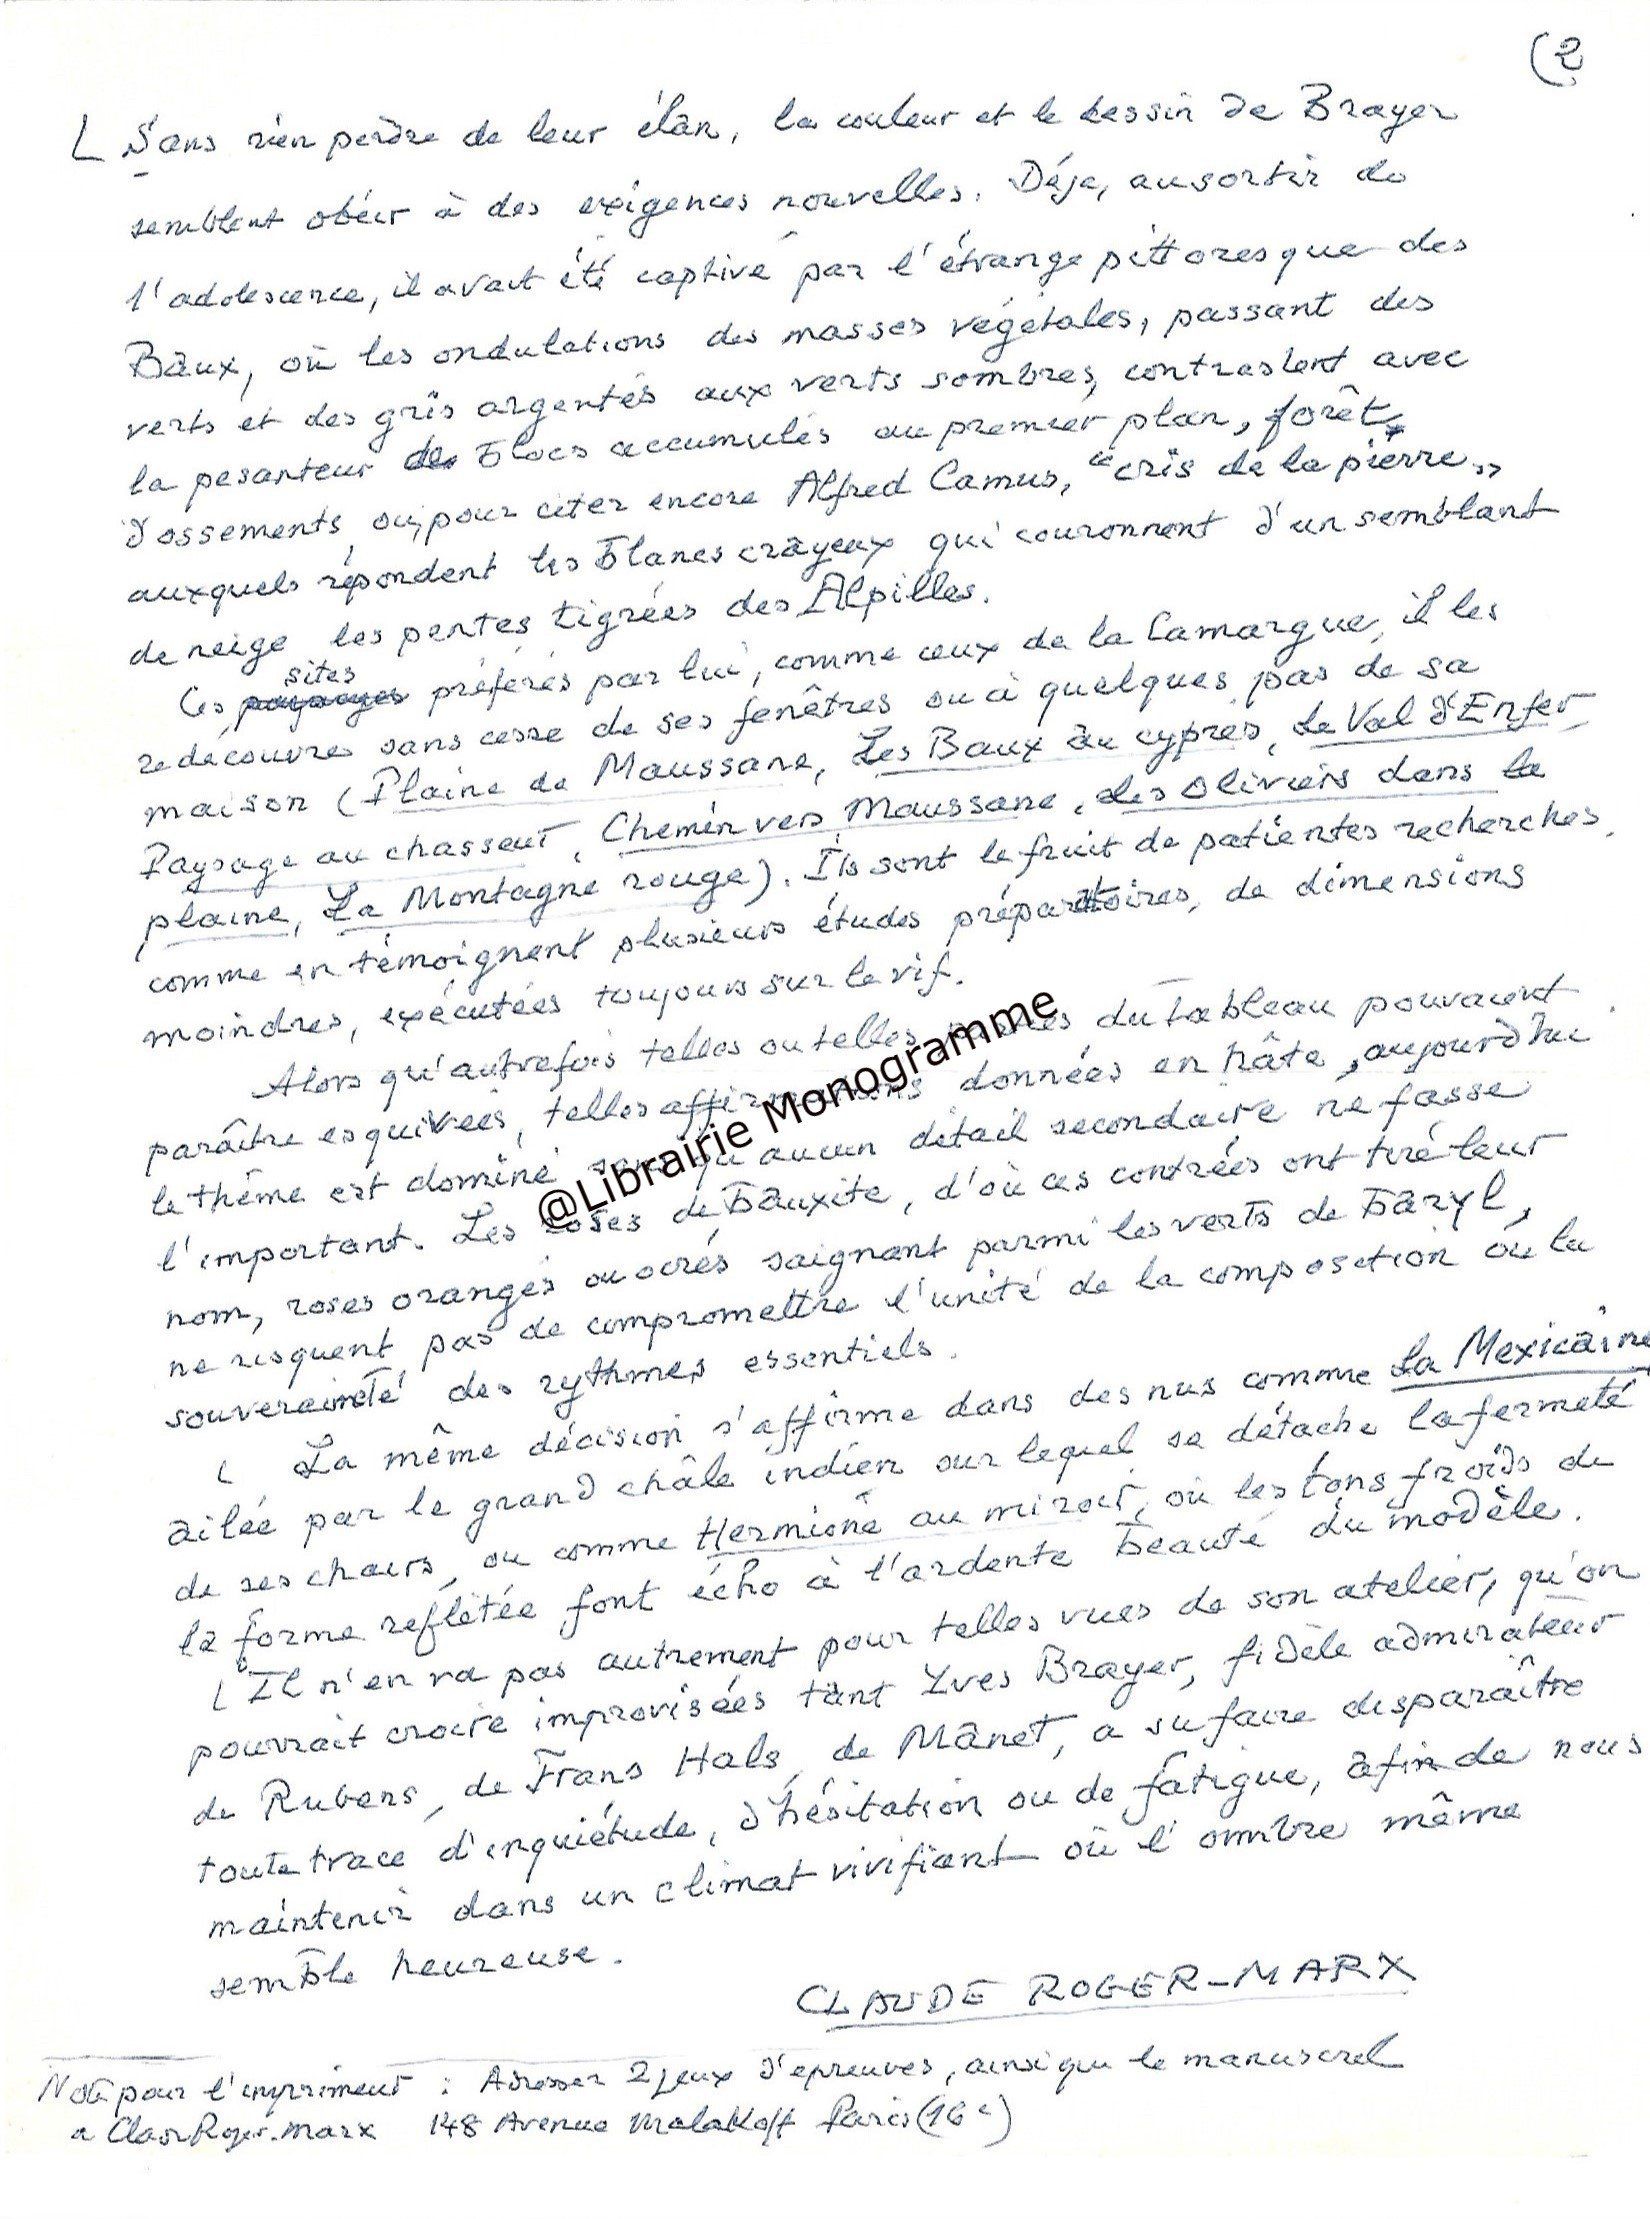 (2
Sans rien perdre de leur élan, la couleur et le dessin de Brayer
semblent obéir à des exigences nouvelles. Déjà, au sortir de
l'adolescence, il avait été captivé par l'étrange pittoresque des
Baux, où les ondulations des masses végétales, passant des
verts et des gris argentés aux verts sombres, contrastent avec
la pesanteur de blocs accumulés au premier plan, forêt
d'ossements ou, pour citer encore Alfred Camus, "cris de la pierre"
auxquels répondent les blancs crayeux qui couronnent d'un semblant
de neige les pentes tigrées des Alpilles.
sites
Ces paysages préférés par lui, comme ceux de la Camargue, il les
redécouvre sans cesse de ses fenêtres ou à quelques pas de sa
maison (Plaine de Maussane, Les Baux au cyprès, Le Val d'Enfer,
Paysage au chasseur, Chemin vers Maussane, des Oliviers dans la
plaine, La Montagne rouge). Ils sont le fruit de patientes recherches,
comme en témoignent plusieurs études préparatoires, de dimensions
moindres, exécutées toujours sur le vif.
Alors qu'autrefois telles ou telles du tableau pouvaient
paraître esquivées, telles affirmations données en hâte, aujourd'hui
le thème est dominé sans qu'aucun détail secondaire ne fasse
l'important. Les roses de bauxite, d'où ces contrées ont tiré leur
nom, roses orangés ou ocrés saignant parmi les verts de béryl,
ne risquent pas de compromettre l'unité de la composition où la
souveraineté des rythmes essentiels.
La même décision s'affirme dans des nus comme La Mexicaine
ailée par le grand châle indien sur lequel se détache la fermeté
de ses chairs, ou comme Hermione au miroir, où les tons froids de
la forme reflétée font écho à l'ardente beauté du modèle.
Il n'en va pas autrement pour telles vues de son atelier, qu'on
pourrait croire improvisées tant Yves Brayer, fidèle admirateur
de Rubens, de Frans Hals, de Manet, a su faire disparaître
toute trace d'inquiétude, d'hésitation ou de fatigue, afin de nous
maintenir dans un climat vivifiant où l'ombre même
semble heureuse.
CLAUDE ROGER-MARX
Note pour l'imprimeur : Adresser 2 jeux d'épreuves, ainsi que le manuscrit
a Claude Roger-Marx 148 Avenue Malakoff Paris (16e)
@Librairie Monogramme